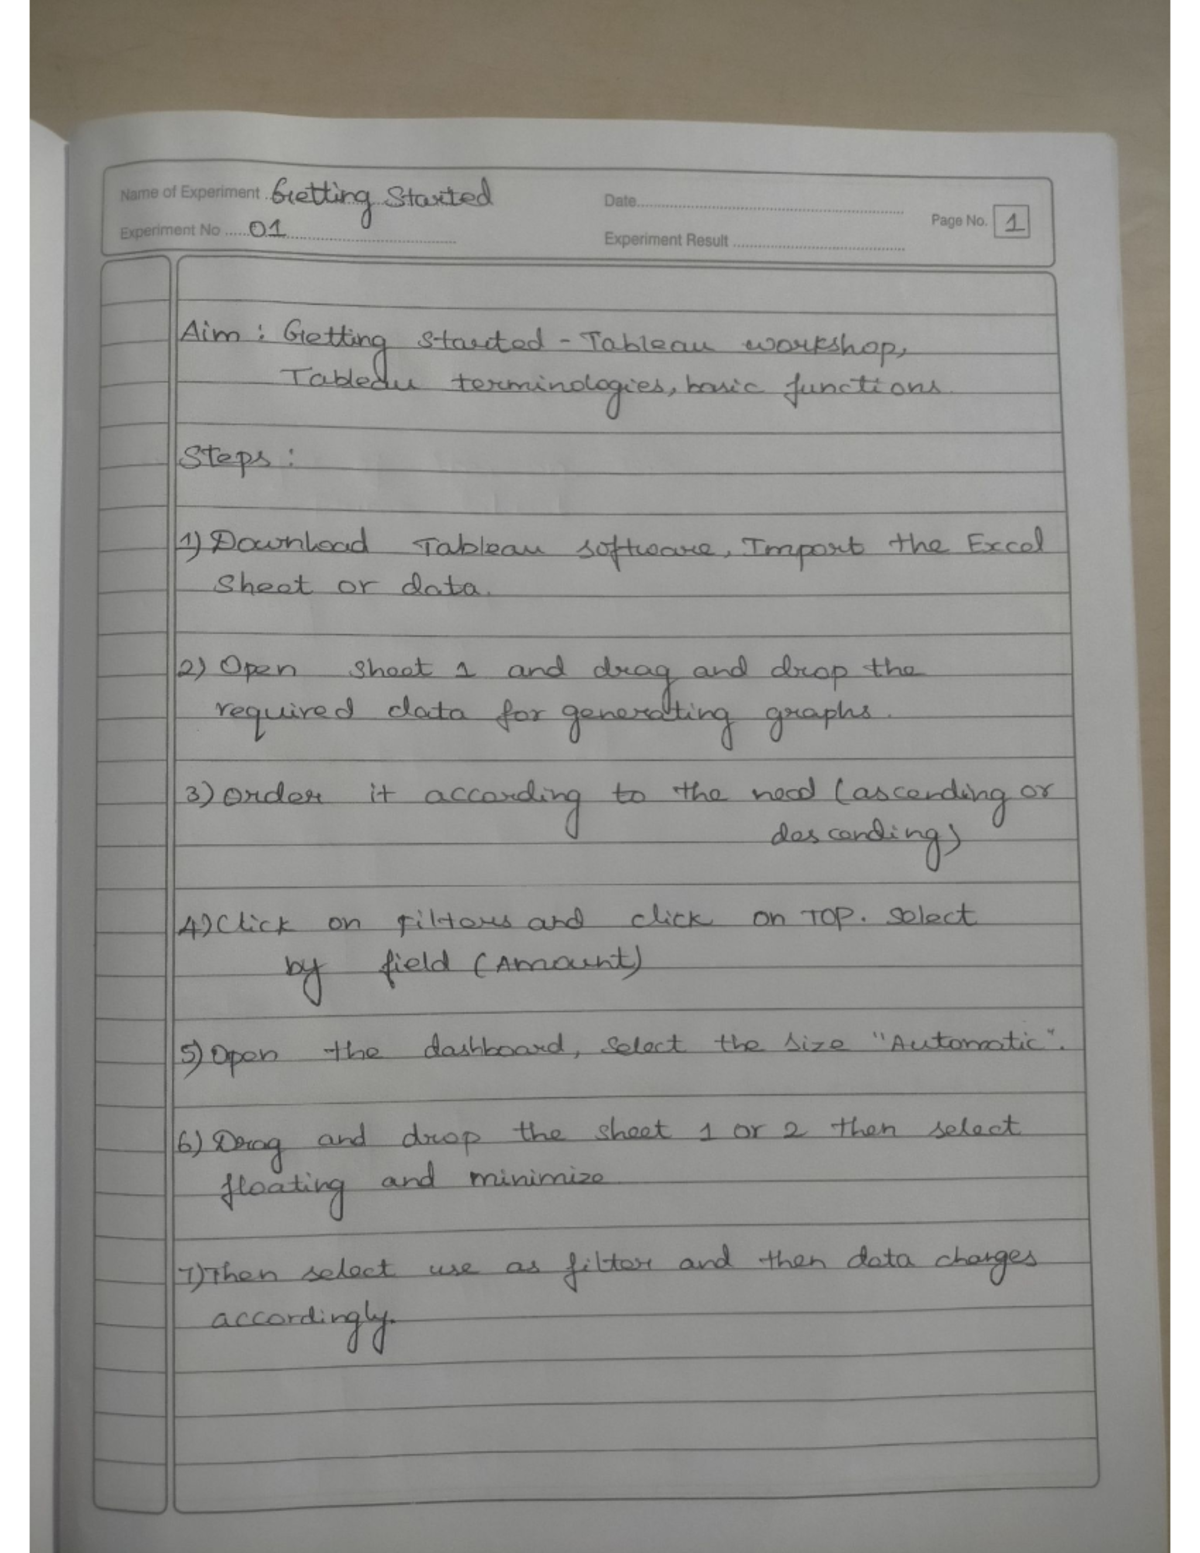 Name of Experiment Getting Started
Date
Page No. 1
Experiment No 01
Experiment Result
Aim : Getting Started - Tableau workshop,
Tableau terminologies, basic functions
Steps :
1) Download Tableau software, Import the Excel
Sheet or data.
2) Open sheet 1 and drag and drop the
required data for generating graphs.
3) Order it according to the need (ascending or
descending)
4) Click on filters and click on TOP. Select
by field (Amount)
5) Open the dashboard, select the size "Automatic".
6) Drag and drop the sheet 1 or 2 then select
floating and minimize
7) Then select use as filter and then data changes
accordingly.